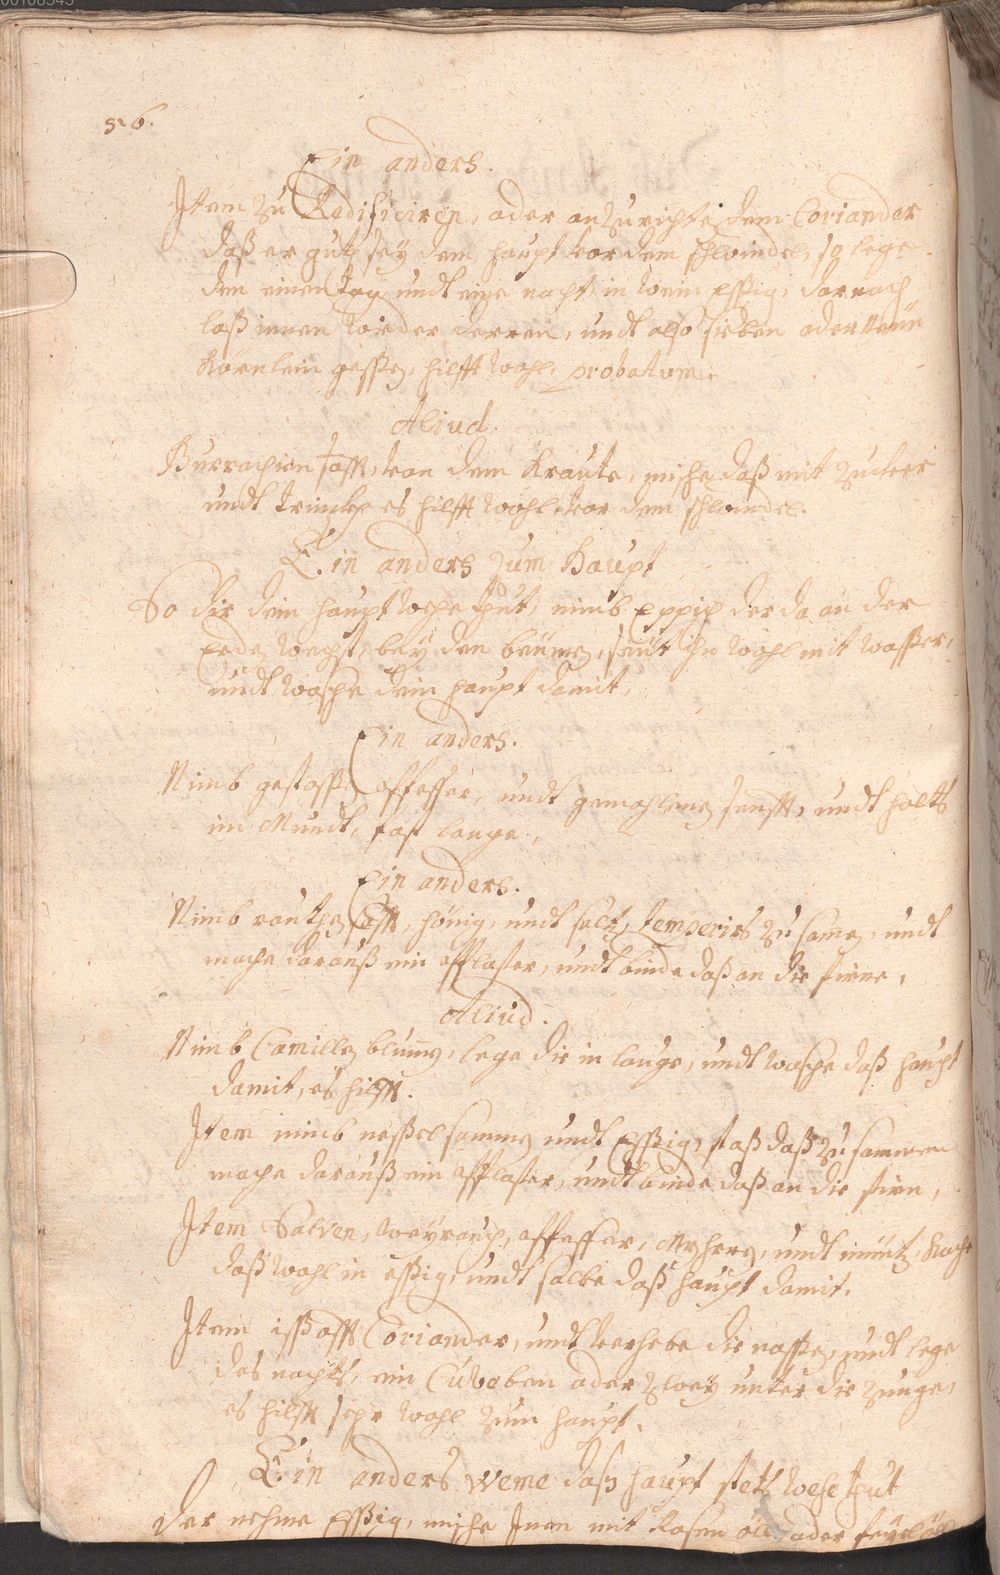 526.
Ein anders.
Item zu Redificiren, oder anzurichte dem Coriander
daß er guth sey dem haupt vor dem schwindel, so lege
den einen tag undt eine nacht in Wein Essig, darnach
laß innen wieder derren, undt also sieben oder neün
körnlein gessen, hilfft wohl, probatum.
Aliud.
Burrachien safft, von dem Kraute, mische daß mit zucker
undt trinck es hilfft wohl vor dem schwindel.
Ein anders zum Haupt
So dir dein haupt wehe thut, nimb Eppich der da an der
Erde wechst, bey den beümen, seüt In wohl mit wasser,
undt wasche dein haupt damit,
Ein anders.
Nimb gestossen pfeffer, undt gemahlenen senfft, undt halts
im Mundt, fast lange.
Ein anders.
Nimb rauthen safft, hönig, undt saltz, temperirs zu samen, undt
mache darauß ein pflaster, undt binde daß an die stirne,
Aliud.
Nimb Camillen blumen, lege die in lauge, undt wasche daß haupt
damit, es hilfft.
Item nimb nesselsammen undt Essig, stoß daß zu sammen
mache darauß ein pflaster, undt binde daß an die stirn,
Item Salven, weyrauch, pfeffer, Myhren, undt müntz, koche
daß wohl in essig, undt salbe daß haupt damit.
Item iß offt Coriander, undt verhebe die nassen, undt lege
des nachts, ein Cubeben oder zwey unter die zunge,
es hilfft sehr wohl zum haupt.
Ein anders weme daß haupt stets wehe thut
Der nehme Essig, mische Inen mit Rosen öll, oder feyel öll